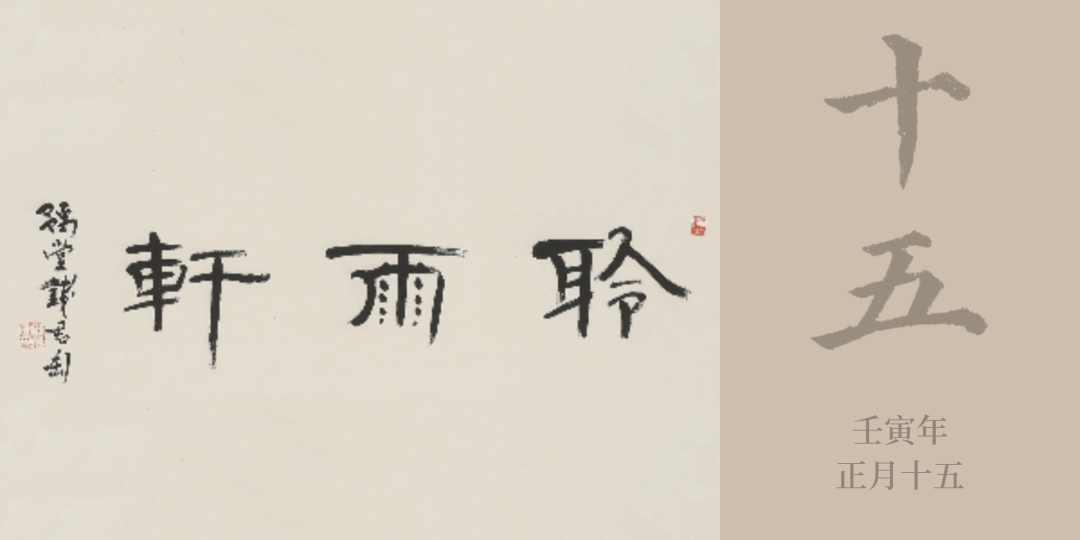 聆雨軒
十五
壬寅年
正月十五